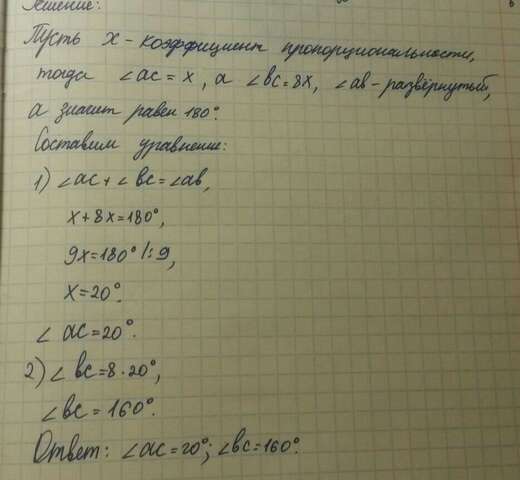 Решение:
Пусть x - коэффициент пропорциональности,
тогда ∠ac = x, а ∠bc = 8x, ∠ab - развёрнутый,
а значит равен 180°.
Составим уравнение:
1) ∠ac + ∠bc = ∠ab,
x + 8x = 180°,
9x = 180° /: 9,
x = 20°.
∠ac = 20°.
2) ∠bc = 8 · 20°,
∠bc = 160°.
Ответ: ∠ac = 20°; ∠bc = 160°.